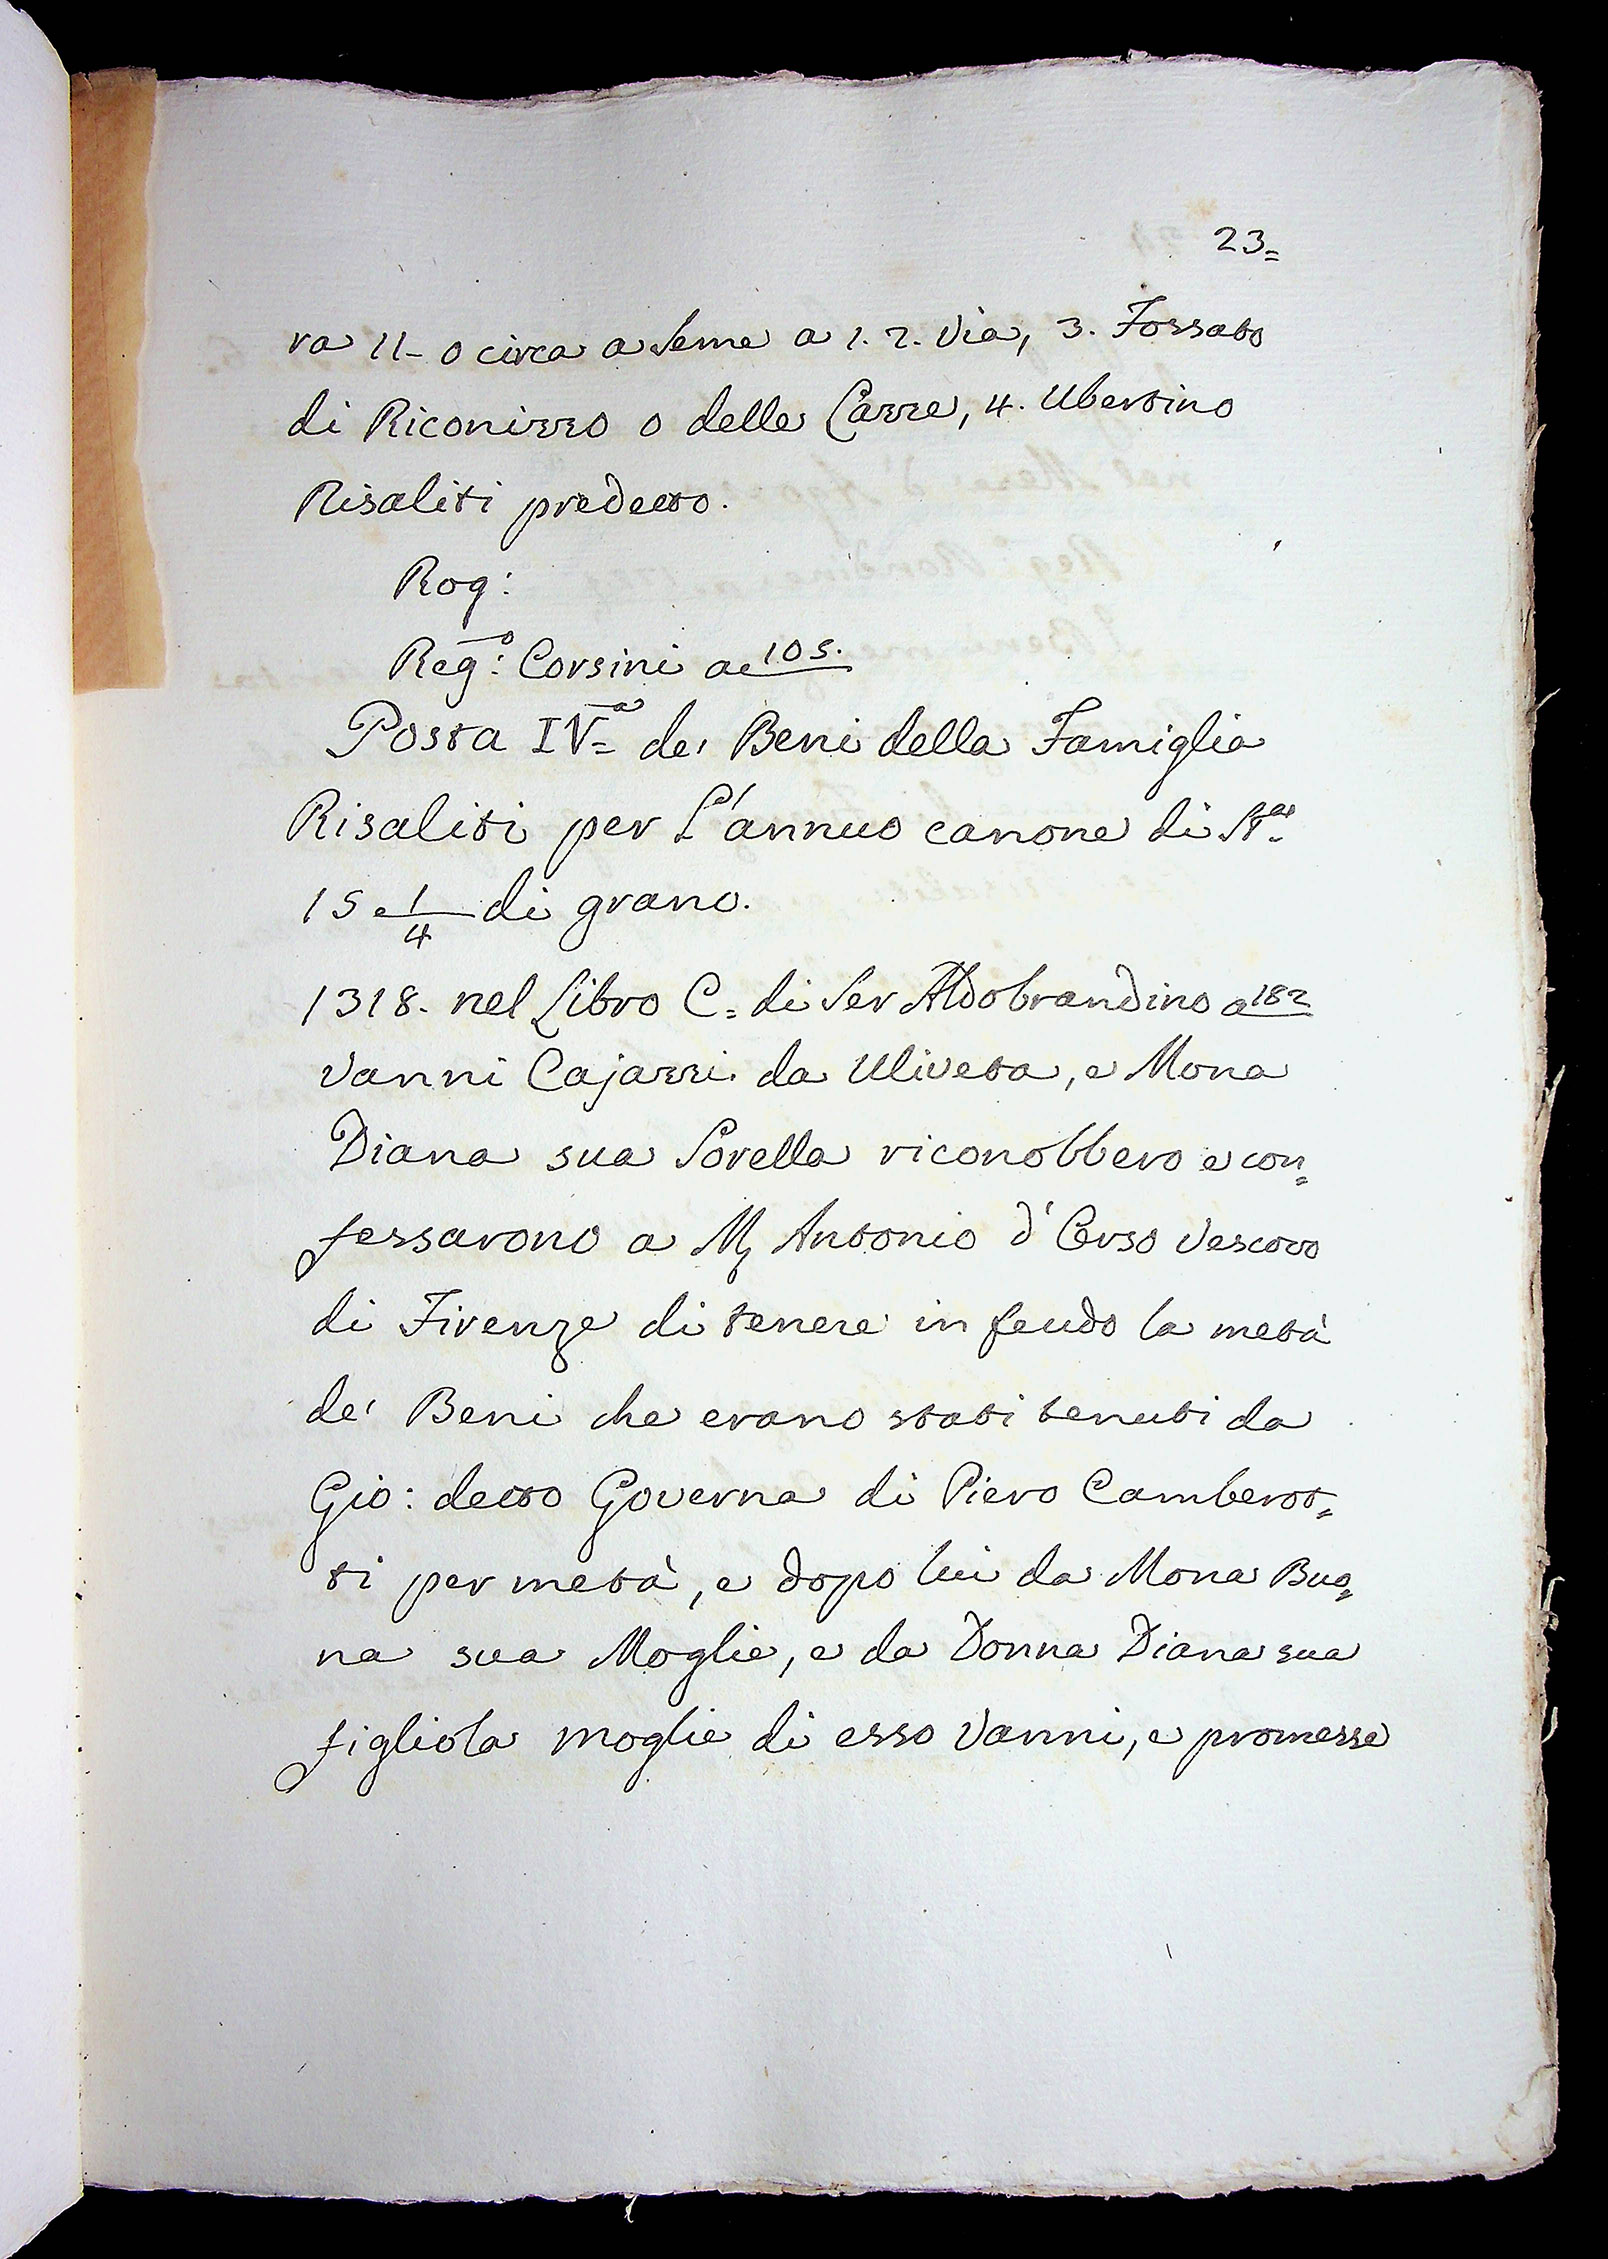 23=
ra 11- o circa a Seme a 1. 2. Via, 3. Fossato
di Riconizzo o delle Cazze, 4. Ubertino
Risaliti predetto.
Rog:
Reg:º Corsini a 105.
Posta IVª de' Beni della Famiglia
Risaliti per L'annuo canone di Stª
15 e 1/4 di grano.
1318. nel Libro C= di Ser Aldobrandino a 182
Vanni Cajazzi da Uliveta, e Mona
Diana sua Sorella riconobbero e con=
fessarono a M. Antonio d'Orso Vescovo
di Firenze di tenere in feudo la metà
de' Beni che erano stati tenuti da
Gio: detto Governa di Piero Cambertot=
ti per metà, e dopo lui da Mona Buo=
na sua Moglie, e da Donna Diana sua
figliola moglie di esso Vanni, e promesse